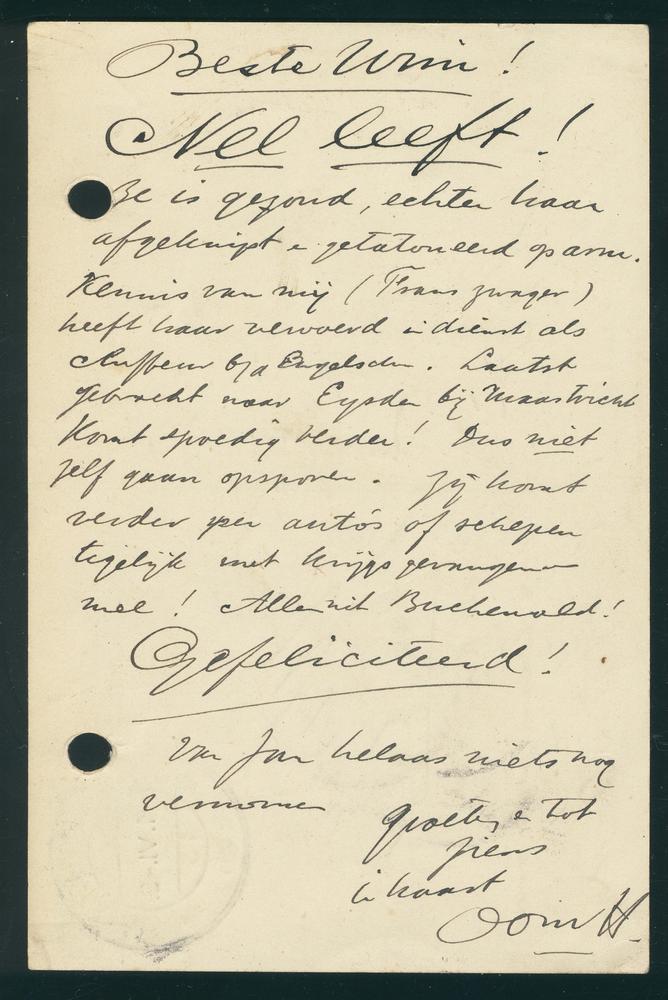 Beste Wim!
Nel leeft!
Ze is gezond, echter haar
afgeknipt en getatoueerd op arm.
Kennis van mij (Frans zwager)
heeft haar vervoerd in dienst als
chauffeur bij Engelschen. Laatst
gebracht naar Eysden bij Maastricht
Komt spoedig verder! Dus niet
zelf gaan opsporen. Zij komt
verder per auto's of schepen
tegelijk met krijgsgevangenen
mee! Allen uit Buchenwald!
Gefeliciteerd!
Van Jan helaas niets nog
vernomen
groeten en tot
ziens
in haast
Oom H.